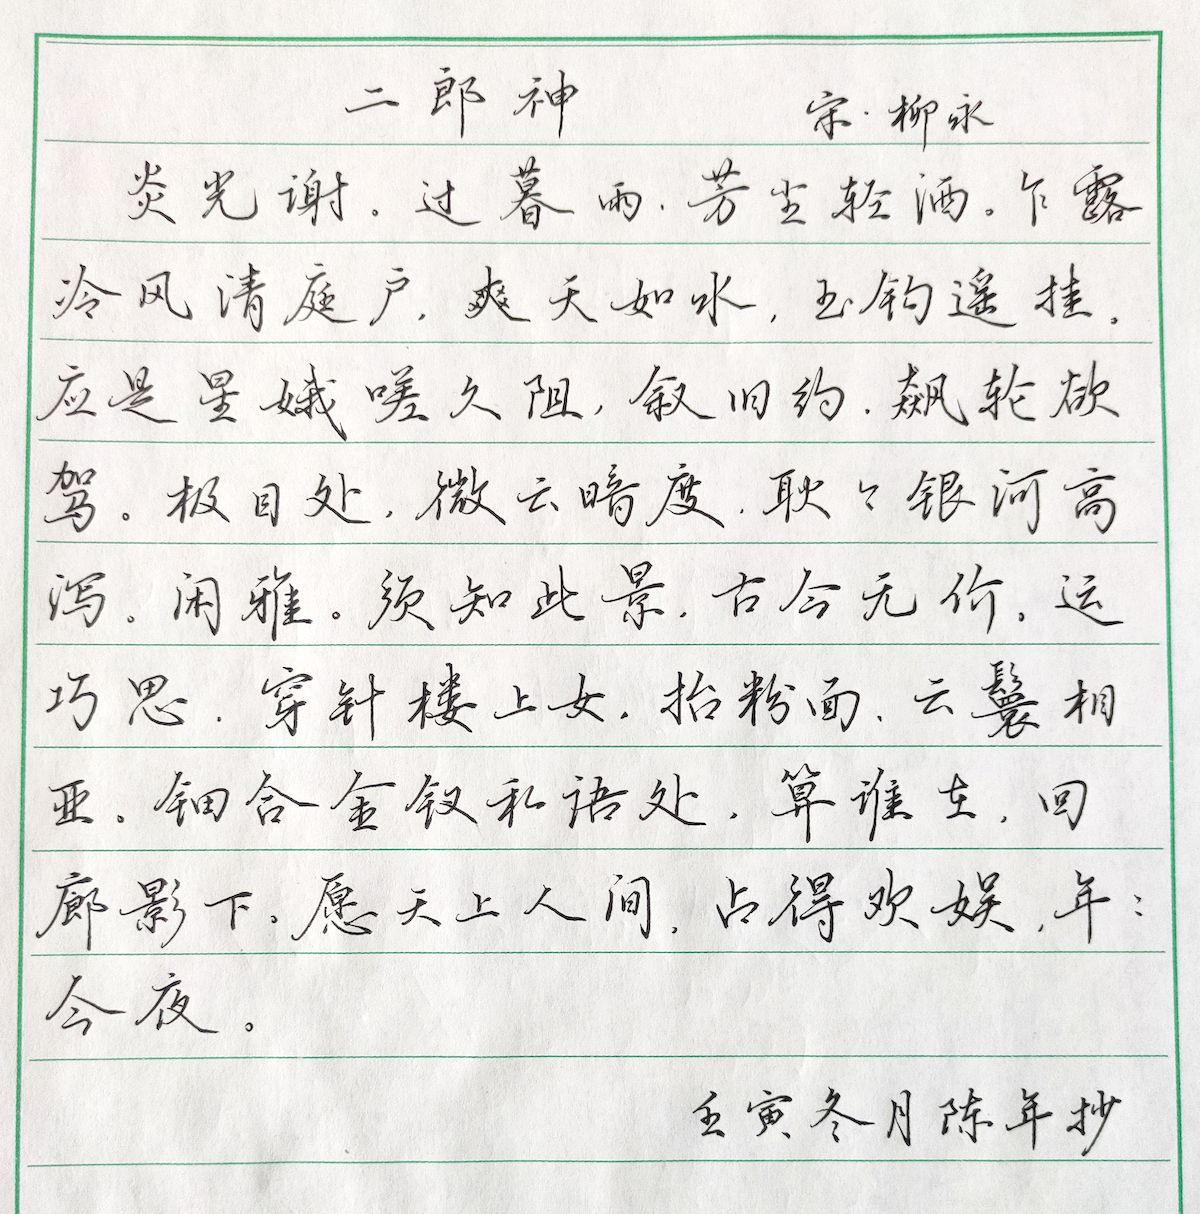 二郎神 宋·柳永
炎光谢。过暮雨、芳尘轻洒。乍露
冷风清庭户,爽天如水,玉钩遥挂。
应是星娥嗟久阻,叙旧约、飙轮欲
驾。极目处、微云暗度,耿々银河高
泻。闲雅。须知此景,古今无价。运
巧思、穿针楼上女,抬粉面、云鬟相
亚。钿合金钗私语处,算谁在、回
廊影下。愿天上人间,占得欢娱,年:
今夜。
壬寅冬月陈年抄